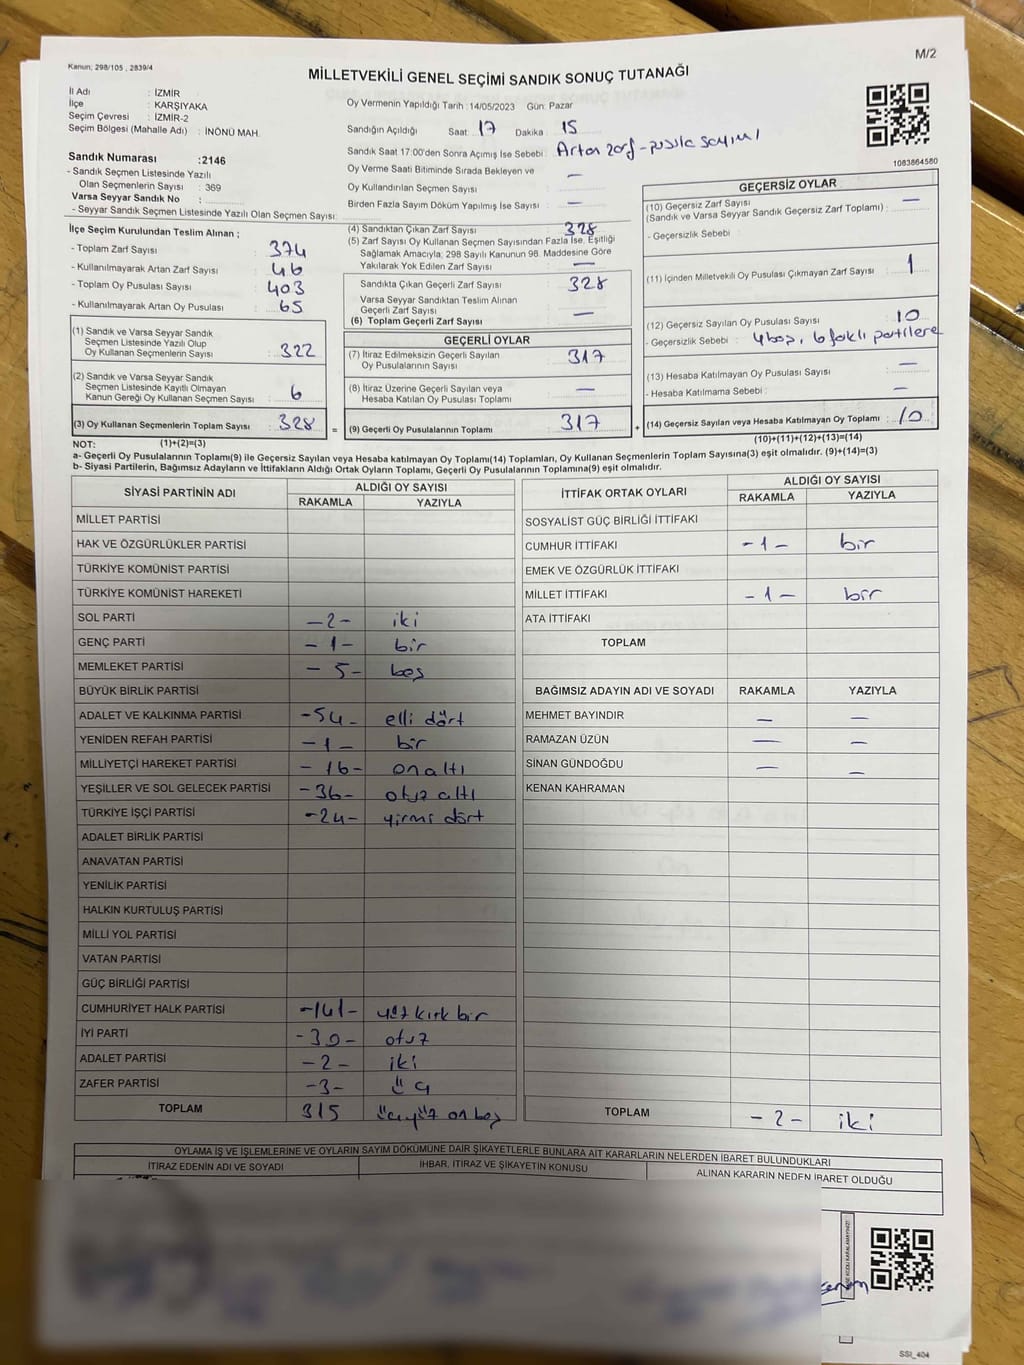 M/2
Kanun; 298/105 , 2839/4
MİLLETVEKİLİ GENEL SEÇİMİ SANDIK SONUÇ TUTANAĞI
İl Adı : İZMİR
İlçe : KARŞIYAKA
Seçim Çevresi : İZMİR-2
Seçim Bölgesi (Mahalle Adı) : İNÖNÜ MAH.
Oy Vermenin Yapıldığı Tarih :14/05/2023 Gün: Pazar
Sandığın Açıldığı Saat: 17 Dakika : 15
Sandık Saat 17:00'den Sonra Açılmış İse Sebebi : Artan zarf-pusula sayımı
Oy Verme Saati Bitiminde Sırada Bekleyen ve
Oy Kullandırılan Seçmen Sayısı : —
Birden Fazla Sayım Döküm Yapılmış İse Sayısı : —
1083864580
Sandık Numarası :2146
- Sandık Seçmen Listesinde Yazılı
Olan Seçmenlerin Sayısı : 369
Varsa Seyyar Sandık No :
- Seyyar Sandık Seçmen Listesinde Yazılı Olan Seçmen Sayısı:
İlçe Seçim Kurulundan Teslim Alınan ;
- Toplam Zarf Sayısı : 374
- Kullanılmayarak Artan Zarf Sayısı : 46
- Toplam Oy Pusulası Sayısı : 403
- Kullanılmayarak Artan Oy Pusulası : 65
(1) Sandık ve Varsa Seyyar Sandık
Seçmen Listesinde Yazılı Olup
Oy Kullanan Seçmenlerin Sayısı : 322
(2) Sandık ve Varsa Seyyar Sandık
Seçmen Listesinde Kayıtlı Olmayan
Kanun Gereği Oy Kullanan Seçmen Sayısı : 6
(3) Oy Kullanan Seçmenlerin Toplam Sayısı : 328
(4) Sandıktan Çıkan Zarf Sayısı : 328
(5) Zarf Sayısı Oy Kullanan Seçmen Sayısından Fazla İse, Eşitliği
Sağlamak Amacıyla; 298 Sayılı Kanunun 98. Maddesine Göre
Yakılarak Yok Edilen Zarf Sayısı : —
Sandıkta Çıkan Geçerli Zarf Sayısı : 328
Varsa Seyyar Sandıktan Teslim Alınan
Geçerli Zarf Sayısı : —
(6) Toplam Geçerli Zarf Sayısı :
GEÇERLİ OYLAR
(7) İtiraz Edilmeksizin Geçerli Sayılan
Oy Pusulalarının Sayısı : 317
(8) İtiraz Üzerine Geçerli Sayılan veya
Hesaba Katılan Oy Pusulası Toplamı : —
= (9) Geçerli Oy Pusulalarının Toplamı : 317 +
GEÇERSİZ OYLAR
(10) Geçersiz Zarf Sayısı
(Sandık ve Varsa Seyyar Sandık Geçersiz Zarf Toplamı) : —
- Geçersizlik Sebebi :
(11) İçinden Milletvekili Oy Pusulası Çıkmayan Zarf Sayısı : 1
(12) Geçersiz Sayılan Oy Pusulası Sayısı : 10
- Geçersizlik Sebebi : 4 boş, 6 faklı partilere
(13) Hesaba Katılmayan Oy Pusulası Sayısı : —
- Hesaba Katılmama Sebebi : —
(14) Geçersiz Sayılan veya Hesaba Katılmayan Oy Toplamı : 10
NOT: (1)+(2)=(3)
(10)+(11)+(12)+(13)=(14)
a- Geçerli Oy Pusulalarının Toplamı(9) ile Geçersiz Sayılan veya Hesaba katılmayan Oy Toplamı(14) Toplamları, Oy Kullanan Seçmenlerin Toplam Sayısına(3) eşit olmalıdır. (9)+(14)=(3)
b- Siyasi Partilerin, Bağımsız Adayların ve İttifakların Aldığı Ortak Oyların Toplamı, Geçerli Oy Pusulalarının Toplamına(9) eşit olmalıdır.
SİYASİ PARTİNİN ADI ALDIĞI OY SAYISI
RAKAMLA YAZIYLA
MİLLET PARTİSİ
HAK VE ÖZGÜRLÜKLER PARTİSİ
TÜRKİYE KOMÜNİST PARTİSİ
TÜRKİYE KOMÜNİST HAREKETİ
SOL PARTİ -2- iki
GENÇ PARTİ -1- bir
MEMLEKET PARTİSİ -5- beş
BÜYÜK BİRLİK PARTİSİ
ADALET VE KALKINMA PARTİSİ -54- elli dört
YENİDEN REFAH PARTİSİ -1- bir
MİLLİYETÇİ HAREKET PARTİSİ -16- on altı
YEŞİLLER VE SOL GELECEK PARTİSİ -36- otuz altı
TÜRKİYE İŞÇİ PARTİSİ -24- yirmi dört
ADALET BİRLİK PARTİSİ
ANAVATAN PARTİSİ
YENİLİK PARTİSİ
HALKIN KURTULUŞ PARTİSİ
MİLLİ YOL PARTİSİ
VATAN PARTİSİ
GÜÇ BİRLİĞİ PARTİSİ
CUMHURİYET HALK PARTİSİ -141- yüz kırk bir
İYİ PARTİ -30- otuz
ADALET PARTİSİ -2- iki
ZAFER PARTİSİ -3- üç
TOPLAM 315 üçyüz on beş
İTTİFAK ORTAK OYLARI ALDIĞI OY SAYISI
RAKAMLA YAZIYLA
SOSYALİST GÜÇ BİRLİĞİ İTTİFAKI
CUMHUR İTTİFAKI -1- bir
EMEK VE ÖZGÜRLÜK İTTİFAKI
MİLLET İTTİFAKI -1- bir
ATA İTTİFAKI
TOPLAM
BAĞIMSIZ ADAYIN ADI VE SOYADI RAKAMLA YAZIYLA
MEHMET BAYINDIR — —
RAMAZAN ÜZÜN — —
SİNAN GÜNDOĞDU — —
KENAN KAHRAMAN
TOPLAM -2- iki
OYLAMA İŞ VE İŞLEMLERİNE VE OYLARIN SAYIM DÖKÜMÜNE DAİR ŞİKAYETLERLE BUNLARA AİT KARARLARIN NELERDEN İBARET BULUNDUKLARI
İTİRAZ EDENİN ADI VE SOYADI İHBAR, İTİRAZ VE ŞİKAYETİN KONUSU ALINAN KARARIN NEDEN İBARET OLDUĞU
SSI_404